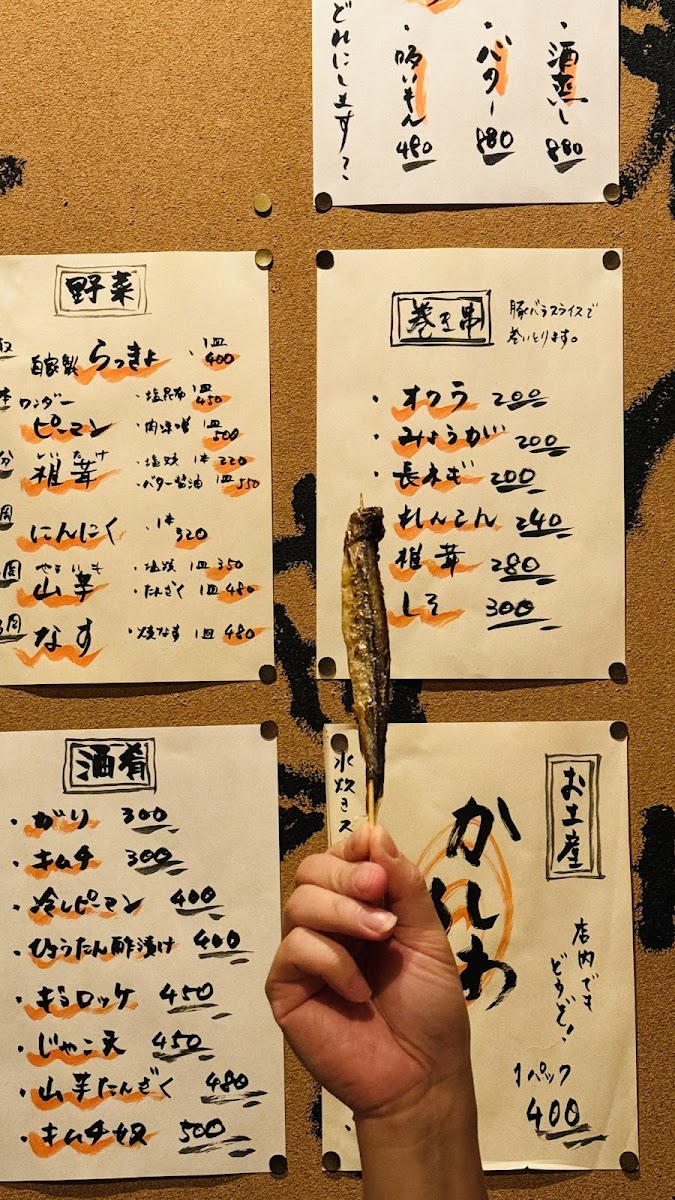 どれにします?
・吸いもん 480
・バター 880
・酒蒸し 880
野菜
自家製 らっきょ ・1皿 400
ワンダー
ピーマン ・塩昆布 1皿 450
・肉味噌 1皿 500
しいたけ
椎茸 ・塩焼 1本 220
・バター醤油 1皿 550
にんにく ・1本 320
やまいも
山芋 ・塩焼 1皿 350
・たんざく 1皿 480
なす ・焼なす 1皿 480
巻き串
豚バラスライスで
巻いとります。
・オクラ 200
・みょうが 200
・長ネギ 200
れんこん 240
椎茸 280
しそ 300
酒肴
・がり 300
・キムチ 300
・冷しピーマン 400
・ひょうたん酢漬け 400
・まるロッケ 450
・じゃこ天 450
・山芋たんざく 480
・キムチ奴 500
水炊きス
お土産
かしわ
店内でも
どうぞ!
1パック
400